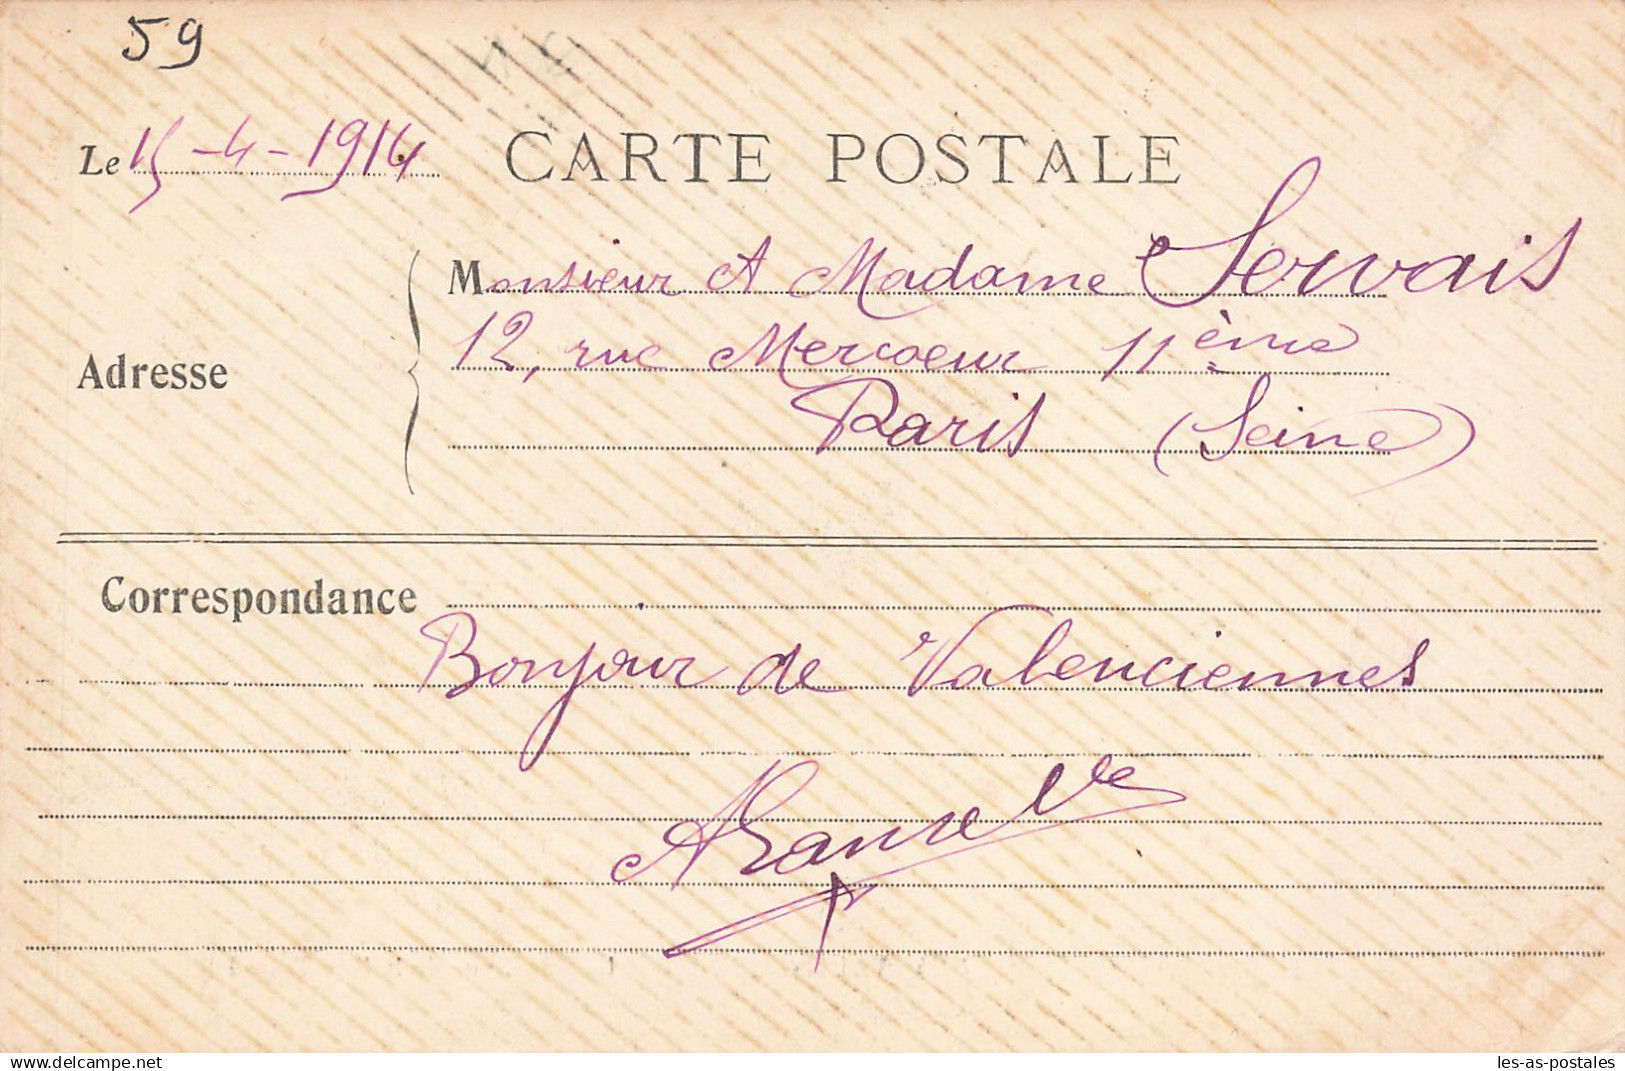 59
Le 15-4-1914
CARTE POSTALE
Monsieur et Madame Servais
Adresse
12, rue Mercoeur 11ème
Paris (Seine)
Correspondance
Bonjour de Valenciennes
https://www.delcampe.net/fr/collections/store/les-as-postales
les-as-postales